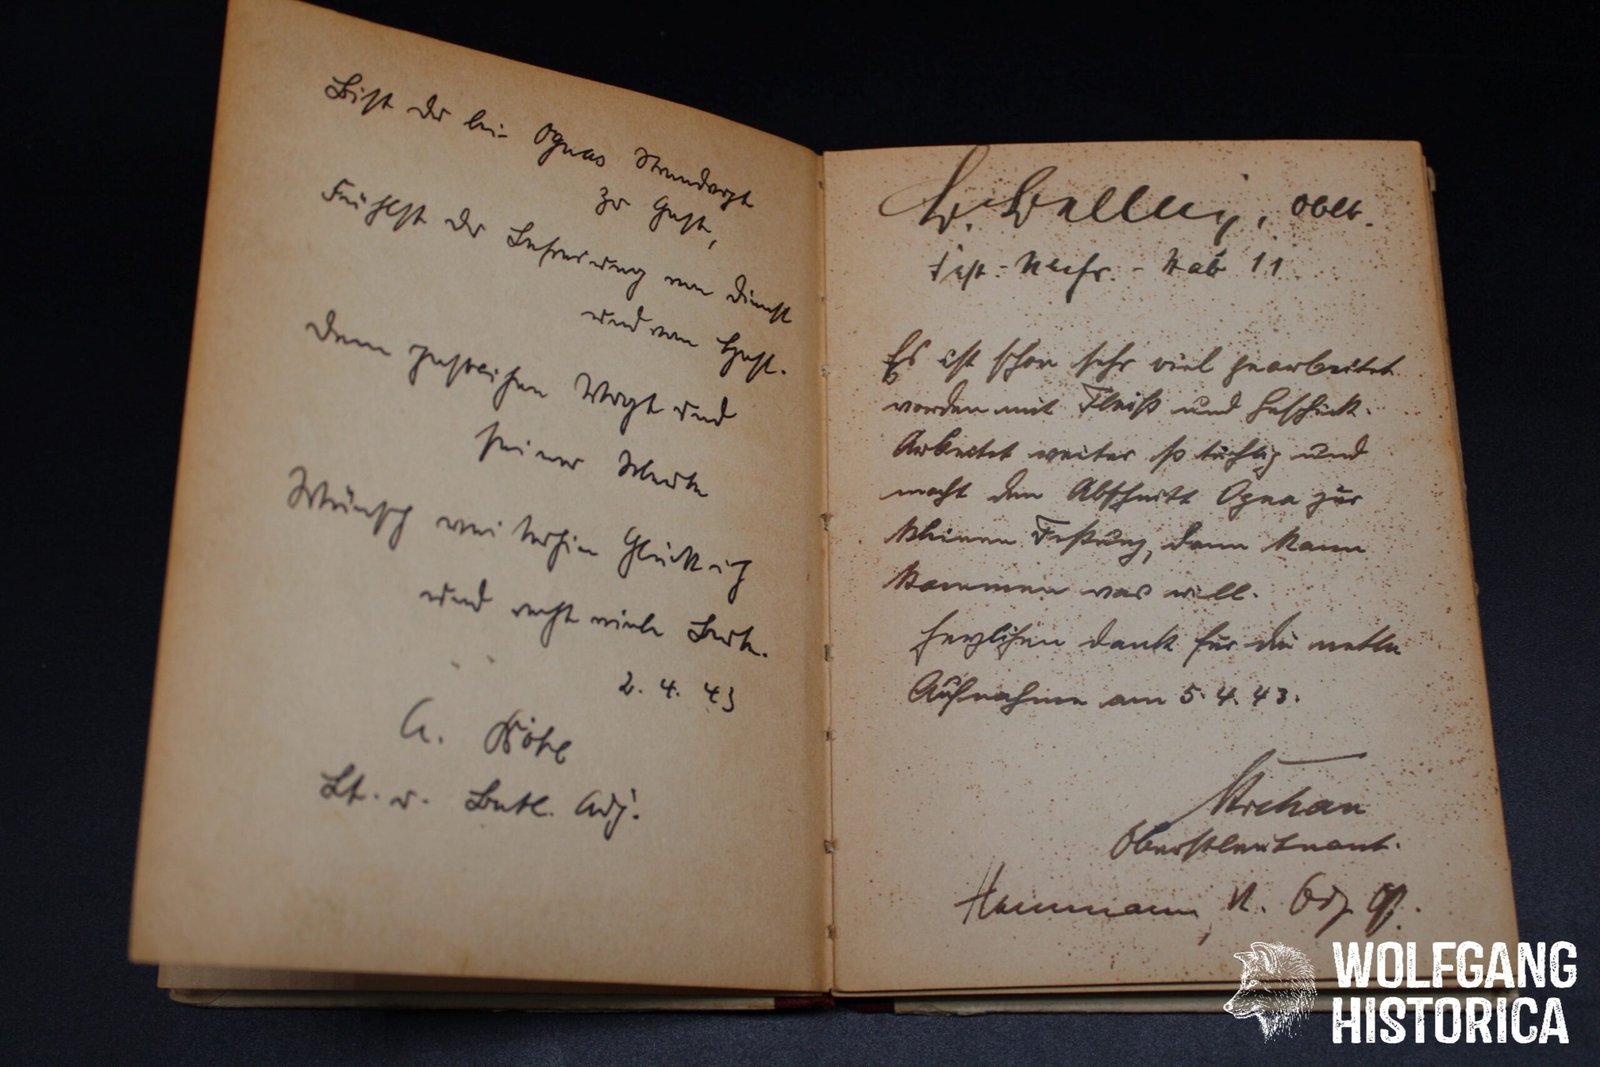 Bist du bei Ognas Strandvogt
zu Gast,
Fühlst du Befreiung von Dienst
und von Hast.
Dem Vogt und
seiner
Wünsch weiterhin Glück ich
und recht viele
2. 4. 43
A.
Lt. u. Batl. Adj.
Oblt.
Fest. Stab 11
Es ist schon sehr viel gearbeitet
worden mit Fleiß und Geschick.
Arbeitet weiter so tüchtig und
macht den Abschnitt Ogna zur
kleinen Festung, dann kann
kommen was will.
Herzlichen Dank für die nette
Aufnahme am 5. 4. 43.
Oberstleutnant.
WOLFGANG
HISTORICA